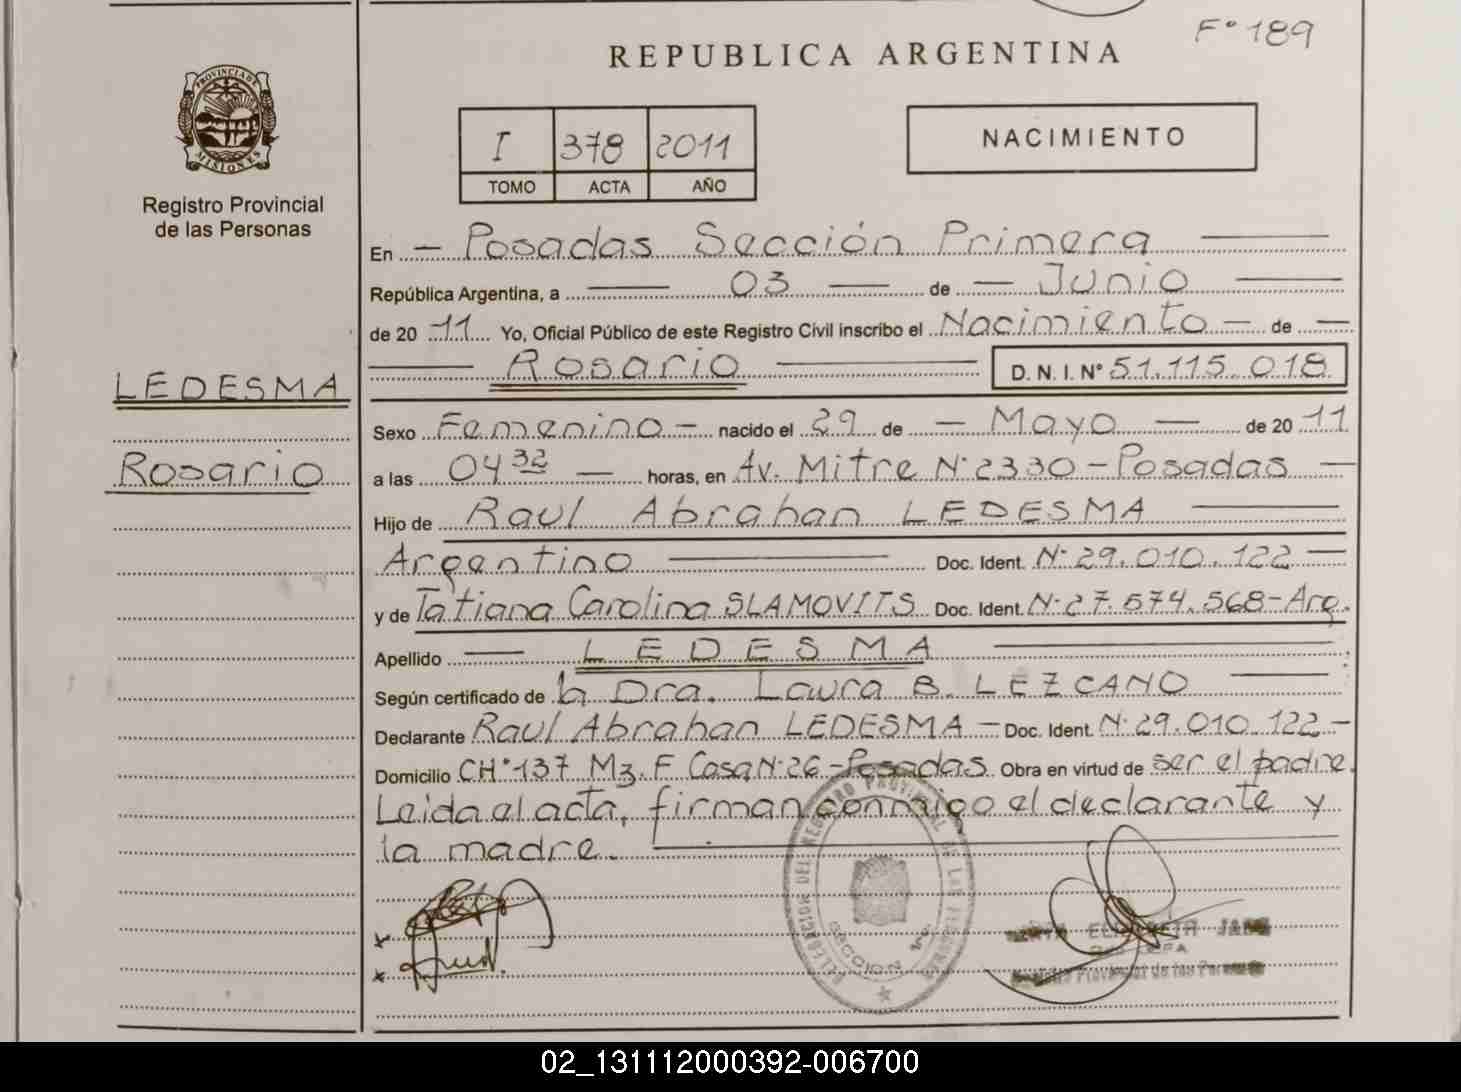 Fº 189
REPUBLICA ARGENTINA
PROVINCIA DE MISIONES
Registro Provincial
de las Personas
I 378 2011
TOMO ACTA AÑO
NACIMIENTO
En - Posadas Sección Primera
República Argentina, a 03 - de - Junio
de 20 11 Yo, Oficial Público de este Registro Civil inscribo el Nacimiento - de -
Rosario D. N. I. Nº 51.115.018
LEDESMA
Rosario
Sexo Femenino - nacido el 29 de - Mayo - de 20 11
a las 04 32 - horas, en Av. Mitre Nº 2330 - Posadas -
Hijo de Raul Abrahan LEDESMA
Argentino Doc. Ident. Nº 29.010.122
y de Tatiana Carolina SLAMOVITS Doc. Ident. Nº 27.574.568 - Arg.
Apellido - LEDESMA
Según certificado de la Dra. Laura B. LEZCANO
Declarante Raul Abrahan LEDESMA - Doc. Ident. Nº 29.010.122 -
Domicilio CHº 137 Mz. F Casa Nº 26 - Posadas Obra en virtud de ser el padre.
Leida el acta, firman conmigo el declarante y
la madre.
DELEGACION DEL REGISTRO PROVINCIAL DE LAS PERSONAS
SECCION 1ª
02_131112000392-006700